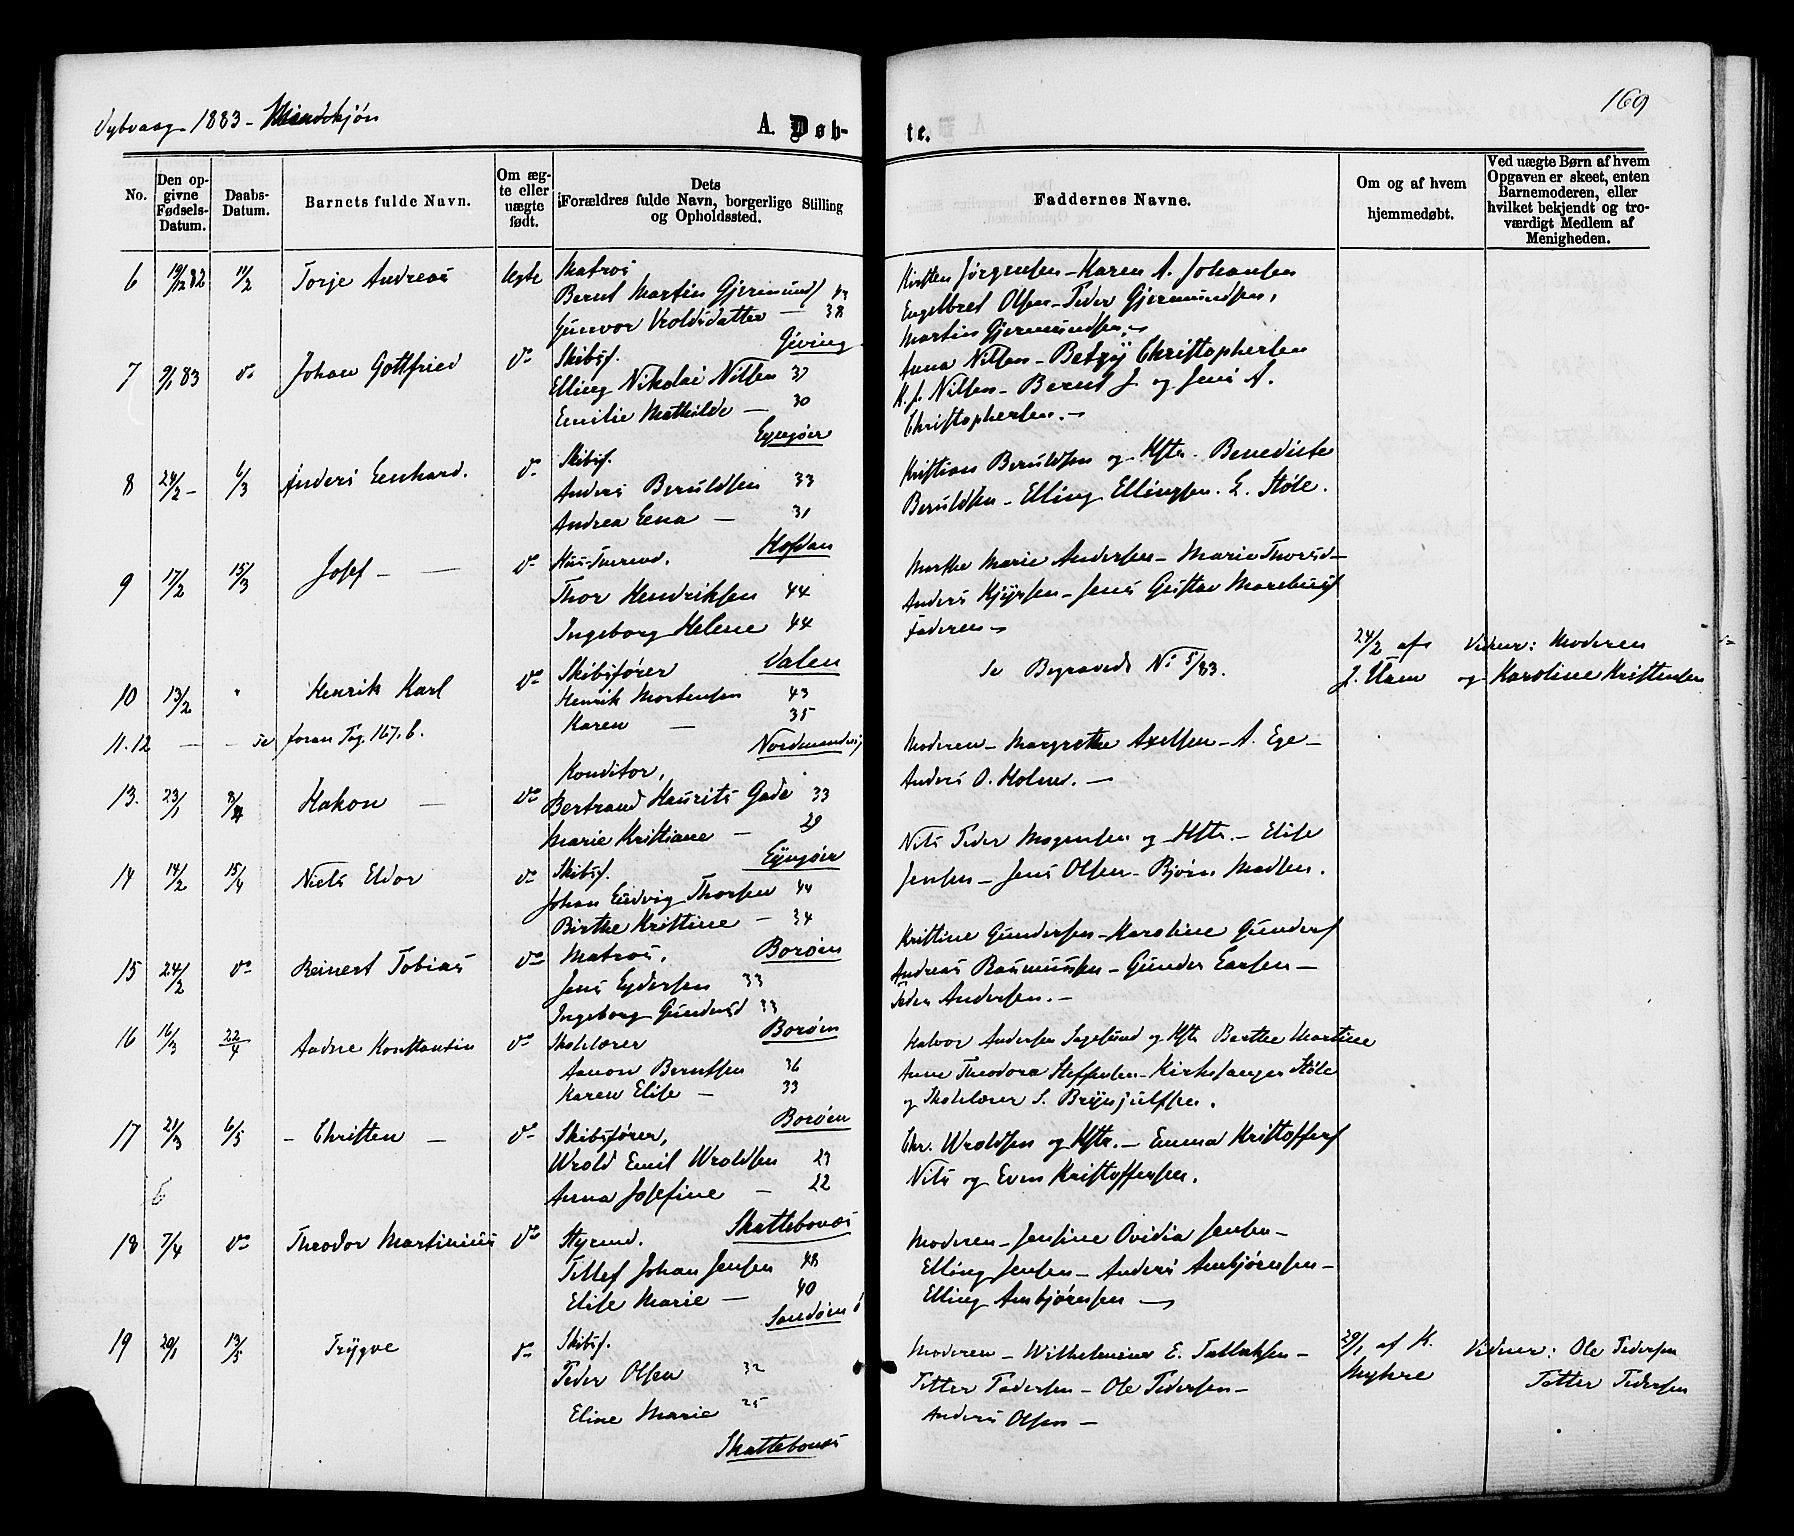 Dybvaag 1883 - Mandskjøn
169
A. Døb-
te.
No.
Den op-
givne
Fødsels-
Datum.
Daabs-
Datum.
Barnets fulde Navn.
Om æg-
te eller
uægte
født.
Dets
Forældres fulde Navn, borgerlige Stilling
og Opholdssted.
Faddernes Navne.
Om og af hvem
hjemmedøbt.
Ved uægte Børn af hvem
Opgaven er skeet, enten
Barnemoderen, eller
hvilket bekjendt og tro-
værdigt Medlem af
Menigheden.
6 19/12 82 11/2 Torje Andreas Ægte Matros
Bernt Martin Gjermunds
Gunvor Vroldsdatter — 38
Gjeving
Kirsten Jørgensen - Karen A. Johansen
Engelbret Olsen - Peder Gjermundsen,
Martin Gjermundsen. -
7 9/1 83 do Johan Gottfried do Skibsf.
Elling Nikolai Nilsen 37
Emilie Mathilde — 30
Lyngøer
Anna Nilsen - Betzy Christophersen
Nilsen - Bernt J. og Jens A.
Christophersen. -
8 24/2 - 6/3 Anders Lenhard. do Skibsf.
Anders Beruldsen 33
Andrea Lena — 31
Kofdan
Kristian Beruldsen og Hstr. Benedicte
Beruldsen - Elling Ellingsen. L. Støle.
9 17/2 15/3 Josef — do Huustømrmd.
Thor Hendriksen 44
Ingeborg Helene 44
Valen
Marthe Marie Andersen - Marie Thorsd -
Anders - Jens Gustav
Faderen -
10 13/2 " Henrik Karl do Skibsfører
Henrik Mortensen 43
Karen — 35
Nordmandvig
Se Begravede No 5/83.
24/2 af
J. Ulan
Vidner: Moderen
og Karoline Kristensen
11.12 — — se foran Pag. 167. b.
13. 23/1 8/4 Hakon — do Konditor,
Bertrand Laurits Gade 33
Marie Kristiane — 29
Lyngøer
Moderen - Margrethe Axelsen - A. Ege -
Anders O. Holm. -
14 14/2 15/4 Niels Eldor do Skibsf.
Johan Ludvig Thorsen 44
Birthe Kristine — 34
Borøen
Nils Peder Mogensen og Hstr. - Elise
Jensen - Jens Olsen - Bjørn Madsen.
15 24/2 do Reinert Tobias do Matros,
Jens Lydersen 33
Ingeborg Gundersd 33
Borøen
Kristine Gundersen - Karoline Gunders
Andreas Rasmussen - Gunder Larsen -
Peder Andersen. -
16 16/3 22/4 Aadne Konstantin do Skolelærer
Aanon Berntsen 36
Karen Elise — 33
Borøen
Halvor Andersen Sagesund og Hstr Berthe Martine
Anne Theodora Steffensen - Kirkesanger Støle
og Skolelærer S. Brynjulfsen.
17 21/3 6/5 - Christen — do Skibsfører,
Wrold Emil Wroldsen 29
Anna Josefine — 22
Skattebonæs
Chr. Wroldsen og Hstr. - Emma Kristoffers
Nils og Even Kristoffersen.
18 7/4 do Theodor Martinius do Styrmd.
Tellef Johan Jensen 48
Elise Marie — 40
Sandøen
Moderen - Jensine Ovidia Jensen -
Elling Jensen - Anders Ambjørnsen -
Elling Ambjørnsen —
19 29/1 13/5 Trygve do Skibsf.
Peder Olsen 32
Eline Marie 25
Skattebonæs
Moderen - Wilhelmine E. Tallaksen -
Petter Pedersen - Ole Pedersen -
Anders Olsen -
29/1 af K.
Myhre
Vidner: Ole Pedersen
Petter Pedersen